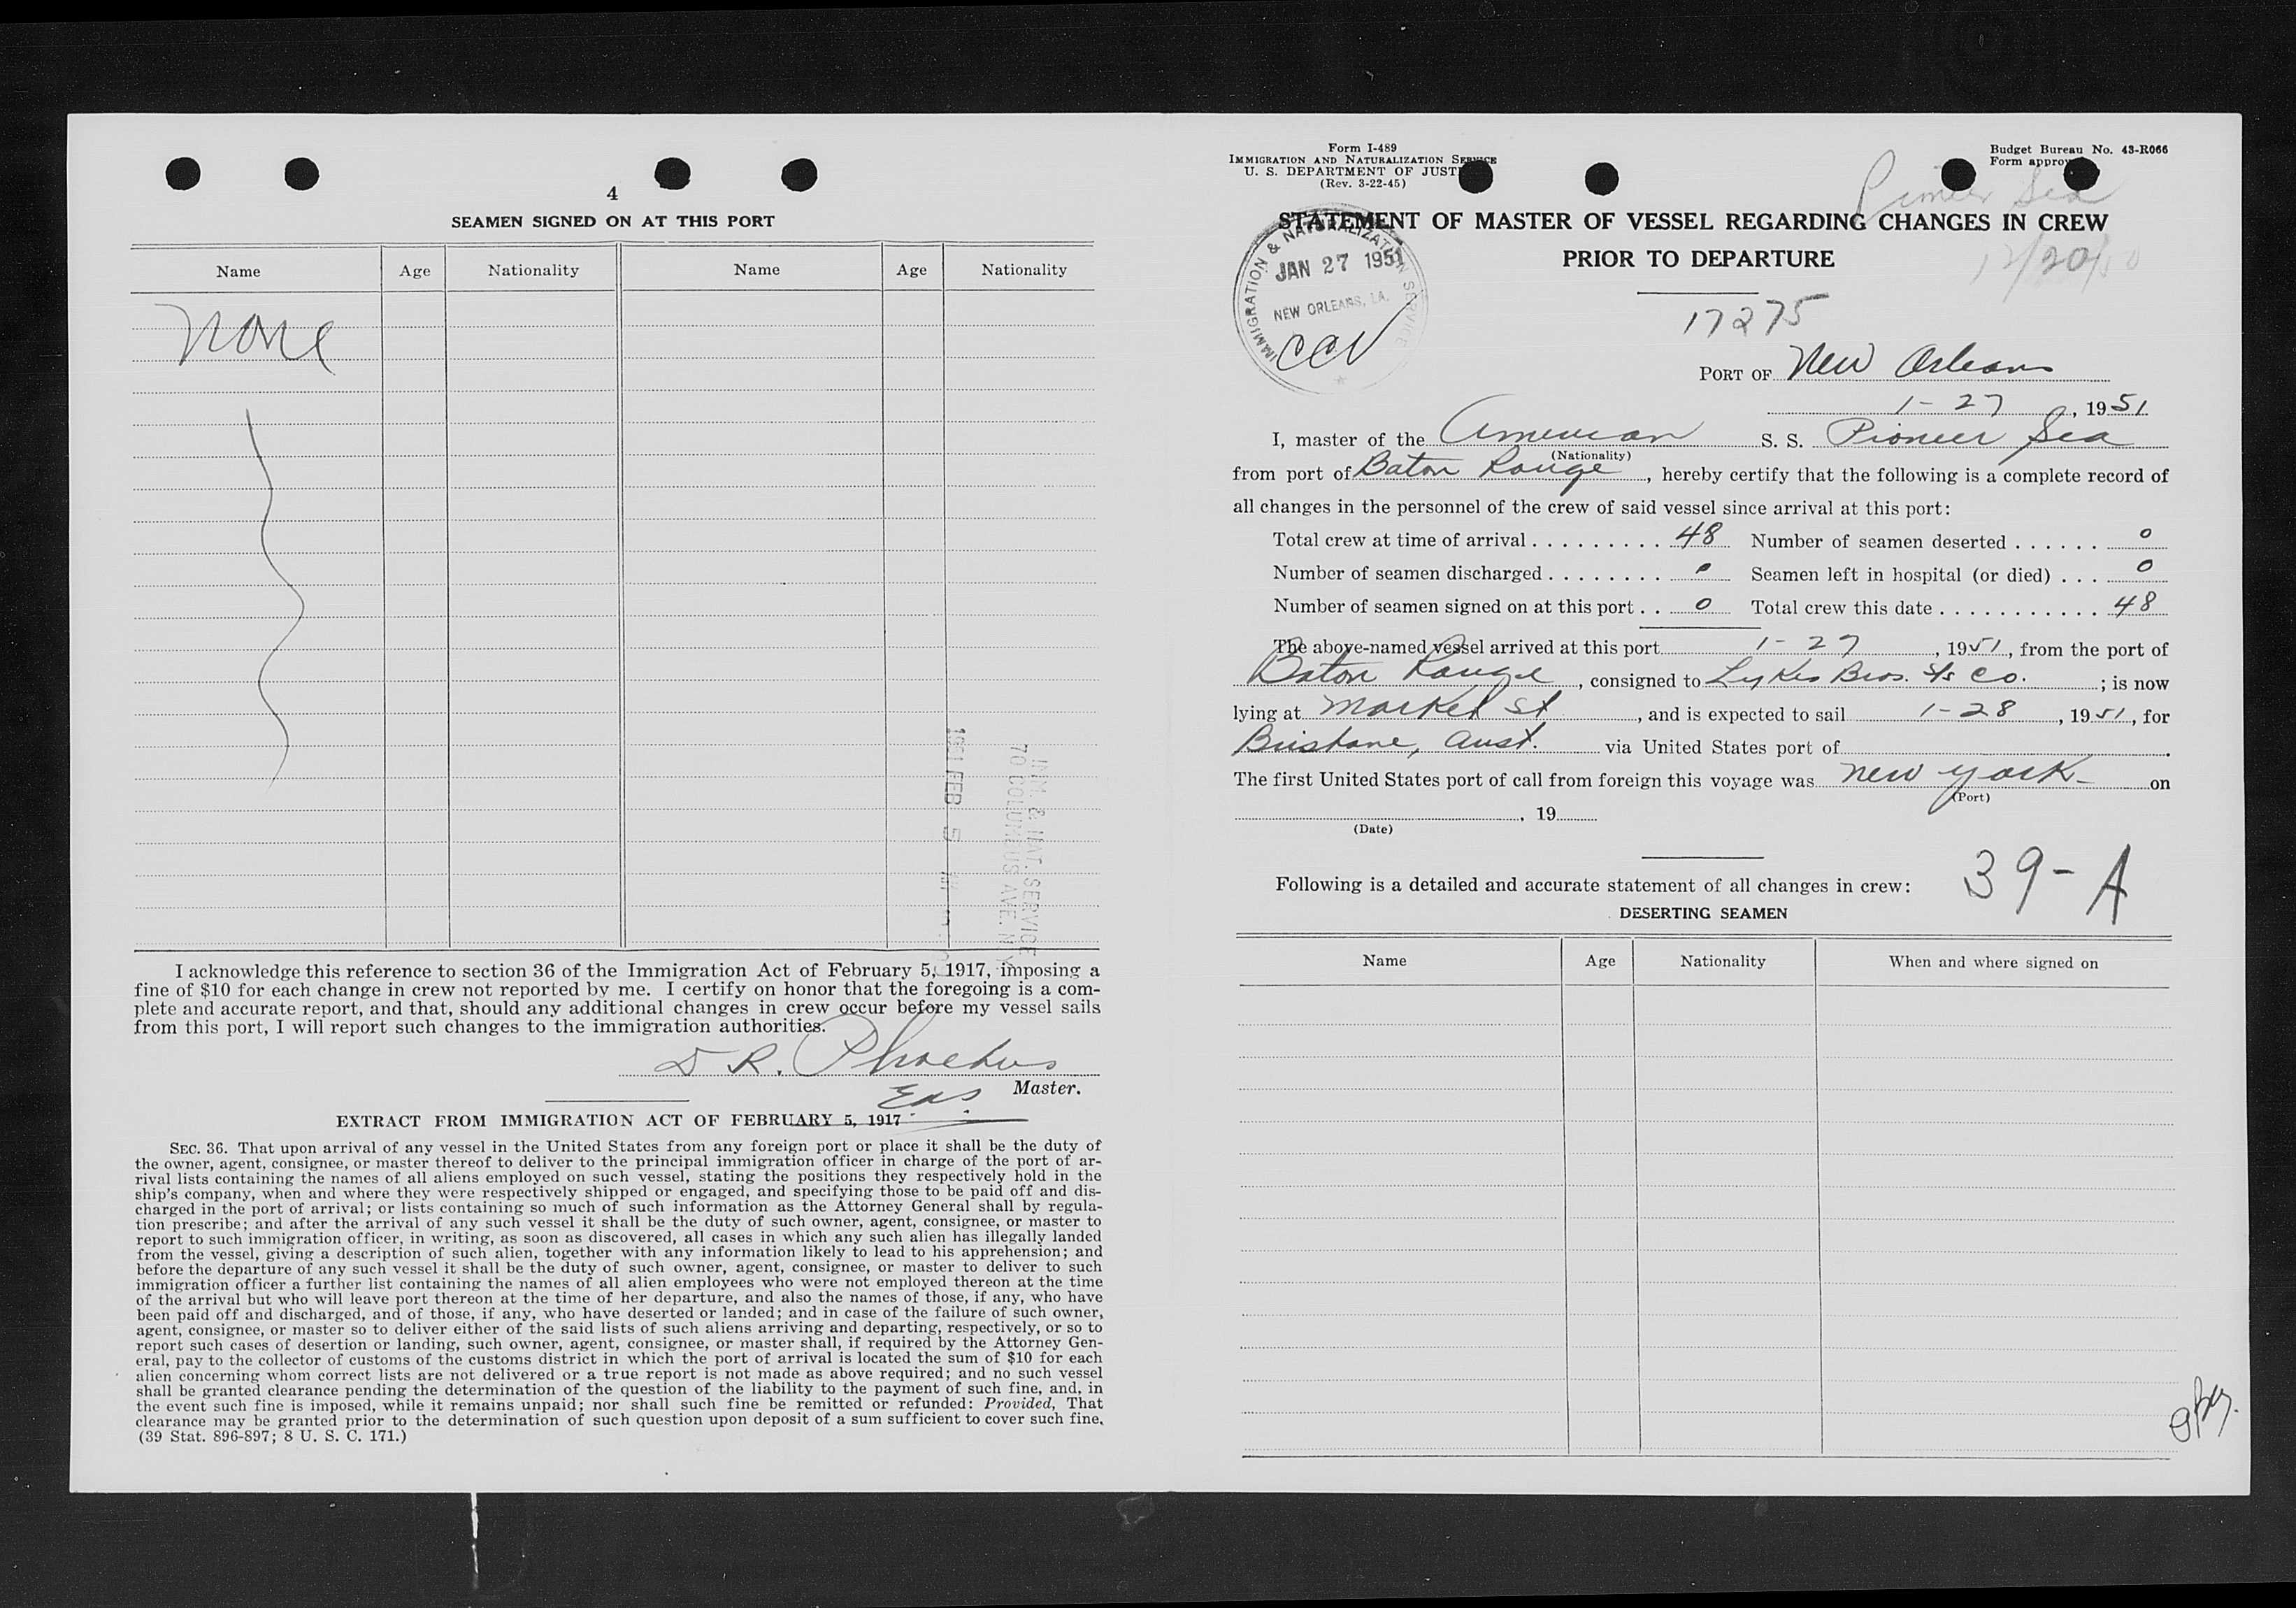 4
SEAMEN SIGNED ON AT THIS PORT
Name Age Nationality Name Age Nationality
None
1951 FEB 5
IMM. & NAT. SERVICE
70 COLUMBUS AVE. N.Y.
I acknowledge this reference to section 36 of the Immigration Act of February 5, 1917, imposing a
fine of $10 for each change in crew not reported by me. I certify on honor that the foregoing is a com-
plete and accurate report, and that, should any additional changes in crew occur before my vessel sails
from this port, I will report such changes to the immigration authorities.
D R. Phoebus
Master.
EXTRACT FROM IMMIGRATION ACT OF FEBRUARY 5, 1917
SEC. 36. That upon arrival of any vessel in the United States from any foreign port or place it shall be the duty of
the owner, agent, consignee, or master thereof to deliver to the principal immigration officer in charge of the port of ar-
rival lists containing the names of all aliens employed on such vessel, stating the positions they respectively hold in the
ship's company, when and where they were respectively shipped or engaged, and specifying those to be paid off and dis-
charged in the port of arrival; or lists containing so much of such information as the Attorney General shall by regula-
tion prescribe; and after the arrival of any such vessel it shall be the duty of such owner, agent, consignee, or master to
report to such immigration officer, in writing, as soon as discovered, all cases in which any such alien has illegally landed
from the vessel, giving a description of such alien, together with any information likely to lead to his apprehension; and
before the departure of any such vessel it shall be the duty of such owner, agent, consignee, or master to deliver to such
immigration officer a further list containing the names of all alien employees who were not employed thereon at the time
of the arrival but who will leave port thereon at the time of her departure, and also the names of those, if any, who have
been paid off and discharged, and of those, if any, who have deserted or landed; and in case of the failure of such owner,
agent, consignee, or master so to deliver either of the said lists of such aliens arriving and departing, respectively, or so to
report such cases of desertion or landing, such owner, agent, consignee, or master shall, if required by the Attorney Gen-
eral, pay to the collector of customs of the customs district in which the port of arrival is located the sum of $10 for each
alien concerning whom correct lists are not delivered or a true report is not made as above required; and no such vessel
shall be granted clearance pending the determination of the question of the liability to the payment of such fine, and, in
the event such fine is imposed, while it remains unpaid; nor shall such fine be remitted or refunded: Provided, That
clearance may be granted prior to the determination of such question upon deposit of a sum sufficient to cover such fine.
(39 Stat. 896-897; 8 U. S. C. 171.)
Form I-489
IMMIGRATION AND NATURALIZATION SERVICE
U. S. DEPARTMENT OF JUST
(Rev. 3-22-45)
Budget Bureau No. 43-R066
Form approv
Pioneer Sea
12/20/50
STATEMENT OF MASTER OF VESSEL REGARDING CHANGES IN CREW
PRIOR TO DEPARTURE
IMMIGRATION & NATURALIZATION SERVICE
JAN 27 1951
NEW ORLEANS, LA.
CCV
17275
PORT OF New Orleans
1-27, 1951
I, master of the American S. S. Pioneer Sea
(Nationality)
from port of Baton Rouge, hereby certify that the following is a complete record of
all changes in the personnel of the crew of said vessel since arrival at this port:
Total crew at time of arrival . . . . . . . . . 48 Number of seamen deserted . . . . . . 0
Number of seamen discharged . . . . . . . . 0 Seamen left in hospital (or died) . . . 0
Number of seamen signed on at this port . . 0 Total crew this date . . . . . . . . . . . 48
The above-named vessel arrived at this port 1-27, 1951, from the port of
Baton Rouge, consigned to Lykes Bros. S/S Co.; is now
lying at Market St, and is expected to sail 1-28, 1951, for
Brisbane, Aust. via United States port of
The first United States port of call from foreign this voyage was New York on
(Port)
, 19
(Date)
Following is a detailed and accurate statement of all changes in crew:
39-A
DESERTING SEAMEN
Name Age Nationality When and where signed on